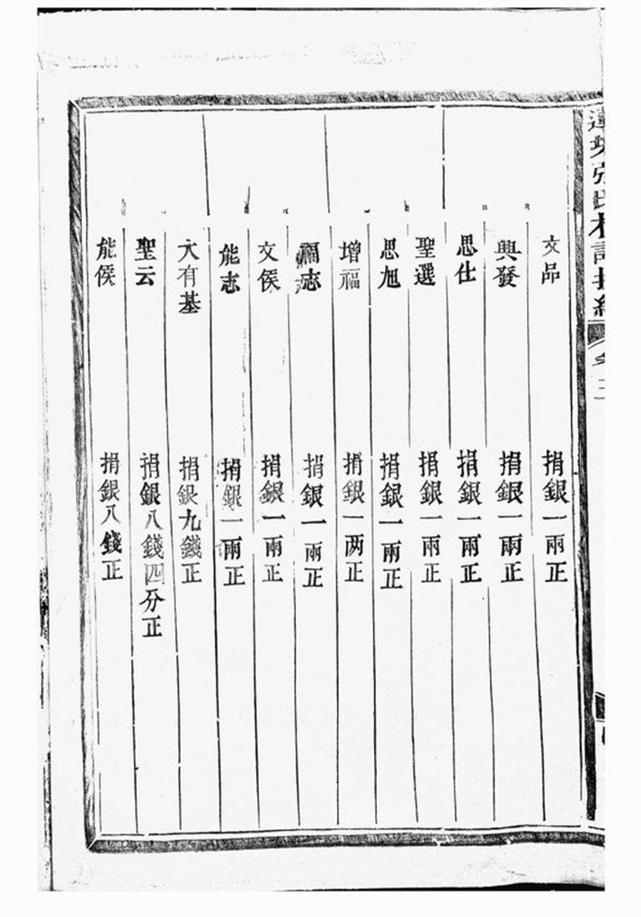 文品 捐銀一兩正
興發 捐銀一兩正
思仕 捐銀一兩正
聖選 捐銀一兩正
思旭 捐銀一兩正
增福 捐銀一两正
福志 捐銀一兩正
文侯 捐銀一兩正
能志 捐銀一兩正
大有基 捐銀九錢正
聖云 捐銀八錢四分正
能侯 捐銀八錢正